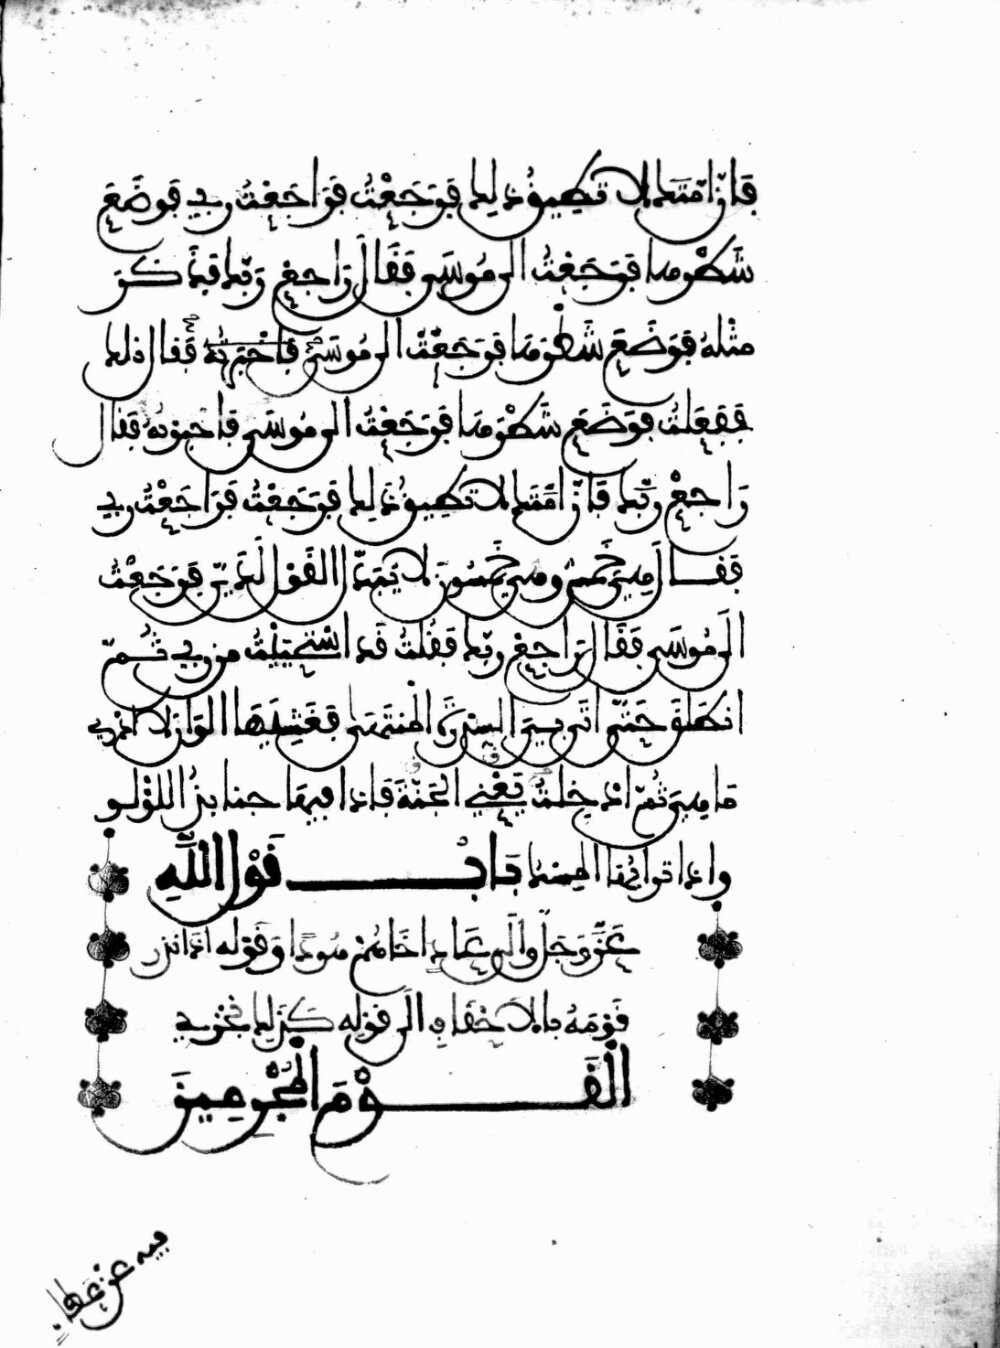 فَإِنَّ أُمَّتَكَ لَا تُطِيقُ ذَلِكَ فَرَجَعْتُ فَرَاجَعْتُ رَبِّي فَوَضَعَ
شَطْرَهَا فَرَجَعْتُ إِلَى مُوسَى فَقَالَ رَاجِعْ رَبَّكَ فَذَكَرَ
مِثْلَهُ فَوَضَعَ شَطْرَهَا فَرَجَعْتُ إِلَى مُوسَى فَأَخْبَرْتُهُ فَقَالَ ذَلِكَ
فَفَعَلْتُ فَوَضَعَ شَطْرَهَا فَرَجَعْتُ إِلَى مُوسَى فَأَخْبَرْتُهُ فَقَالَ
رَاجِعْ رَبَّكَ فَإِنَّ أُمَّتَكَ لَا تُطِيقُ ذَلِكَ فَرَجَعْتُ فَرَاجَعْتُ رَبِّي
فَقَالَ هِيَ خَمْسٌ وَهِيَ خَمْسُونَ لَا يُبَدَّلُ الْقَوْلُ لَدَيَّ فَرَجَعْتُ
إِلَى مُوسَى فَقَالَ رَاجِعْ رَبَّكَ فَقُلْتُ قَدِ اسْتَحْيَيْتُ مِنْ رَبِّي ثُمَّ
انْطَلَقَ حَتَّى أَتَى بِيَ السِّدْرَةَ الْمُنْتَهَى فَغَشِيَهَا أَلْوَانٌ لَا أَدْرِي
مَا هِيَ ثُمَّ أُدْخِلْتُ يَعْنِي الْجَنَّةَ فَإِذَا فِيهَا جَنَابِذُ اللُّؤْلُؤِ
وَإِذَا تُرَابُهَا الْمِسْكُ بَابُ قَوْلِ اللَّهِ
عَزَّ وَجَلَّ وَإِلَى عَادٍ أَخَاهُمْ هُودًا وَقَوْلِهِ إِذْ أَنْذَرَ
قَوْمَهُ بِالْأَحْقَافِ إِلَى قَوْلِهِ كَذَلِكَ نَجْزِي
الْقَوْمَ الْمُجْرِمِينَ
فيه عن عطاء